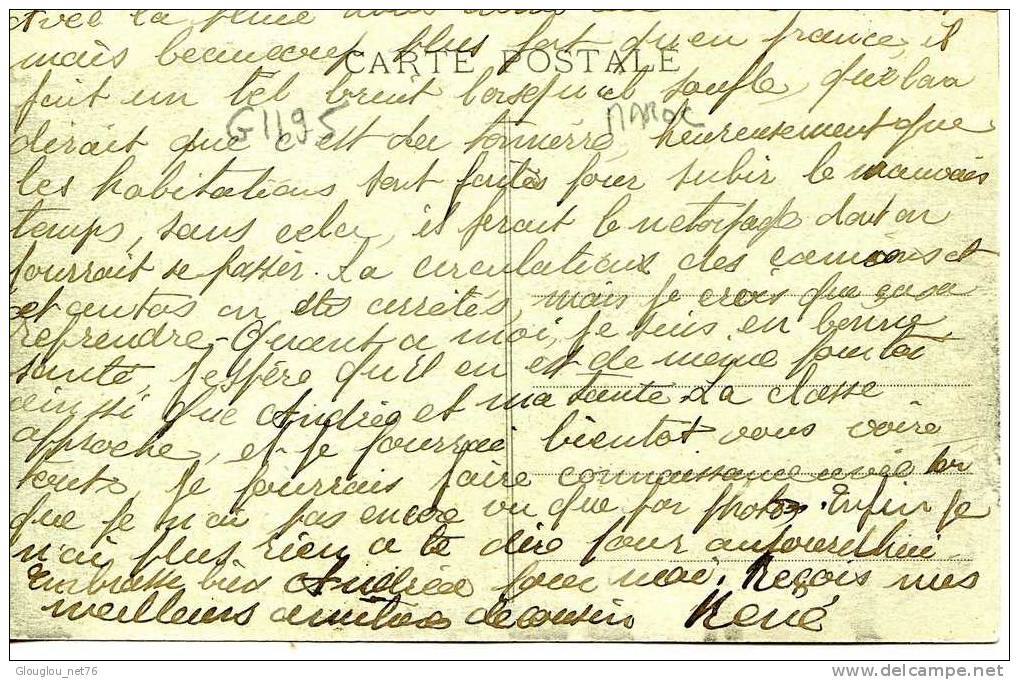 avec la pluie nous
mais beaucoup plus fort qu'en france, il
CARTE POSTALE
fait un tel bruit lorsqu'il soufle, qu'on
G1195
MAROC
dirait que c'est du tonnerre, heureusement que
les habitations sont faites pour subir le mauvais
temps, sans cela, il serait le netoyage dont on
pourrait se passer. La circulations des camions et
et autos on été arretés, mais je crois que ça va
reprendre. Quant a moi, je suis en bonne
santé, j'espère qu'il en est de même pour toi
ainssi que Andrée et ma tante. La classe
approche, et je pourrai bientot vous voire
touts, je pourrais faire connaissance avec toi
que je n'ai pas encore vu que par photo. Enfin je
n'ai plus rien a te dire pour aujourd'hui
embrasse bien Andrée pour moi. Reçois mes
meilleurs amitiées de cousin René
Glouglou_net76
www.delcampe.net